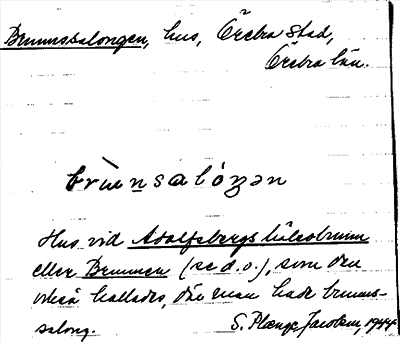 Brunnssalongen, hus, Örebro stad,
Örebro län.
brùnsalóŋən
Hus vid Adolfsbergs hälsobrunn
eller Brunnen (se d.o.), som den
också kallades, där man hade brunns-
salong.
S. Plænge Jacobson, 1944